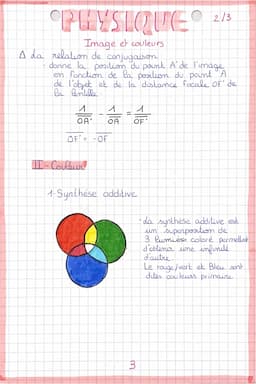 PHYSIQUE 2/3
Image et couleurs
Δ La relation de conjugaison
- donne la position du point A' de l'image
en fonction de la position du point A
de l'objet et de la distance focale OF' de
la lentille.
1/OA' - 1/OA = 1/OF'
OF' = -OF
II - Couleur
1-Synthèse additive
- La synthèse additive est
un superposition de
3 lumière coloré permettant
d'obtenir une infinité
d'autre.
Le rouge/vert et Bleu sont
dites couleurs primaire.
3